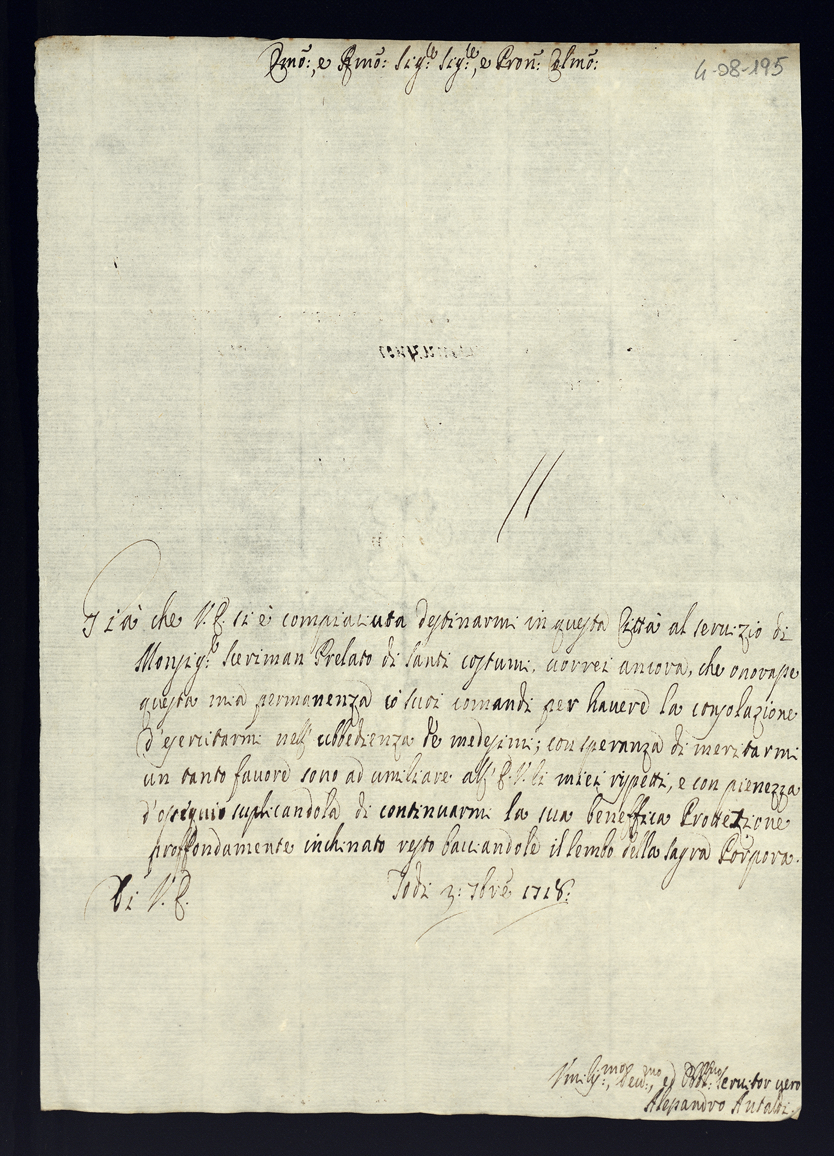 Emõ:, e Rmõ: Sig:re Sig:re, e Pron: Colmõ:
4-08-195
Già che V.E. si è compiaciuta destinarmi in questa Città al servizio di
Monsig:re Sceriman Prelato di santi costumi, vorrei ancora, che onorasse
questa mia permanenza co' suoi comandi per havere la consolazione
d'esercitarmi nell' ubbedienza de' medesimi; con speranza di meritarmi
un tanto favore sono ad umiliare all' E.V. li miei rispetti, e con pienezza
d'ossequio suplicandola di continuarmi la sua beneffica Protezione
proffondamente inchinato resto bacciandole il lembo della sagra Porpora.
Di V.E. Todi 3: 7bre 1718:
Umiliss:mo, Dev:mo, ed Obb:mo Servitor vero
Alessandro Antaldi